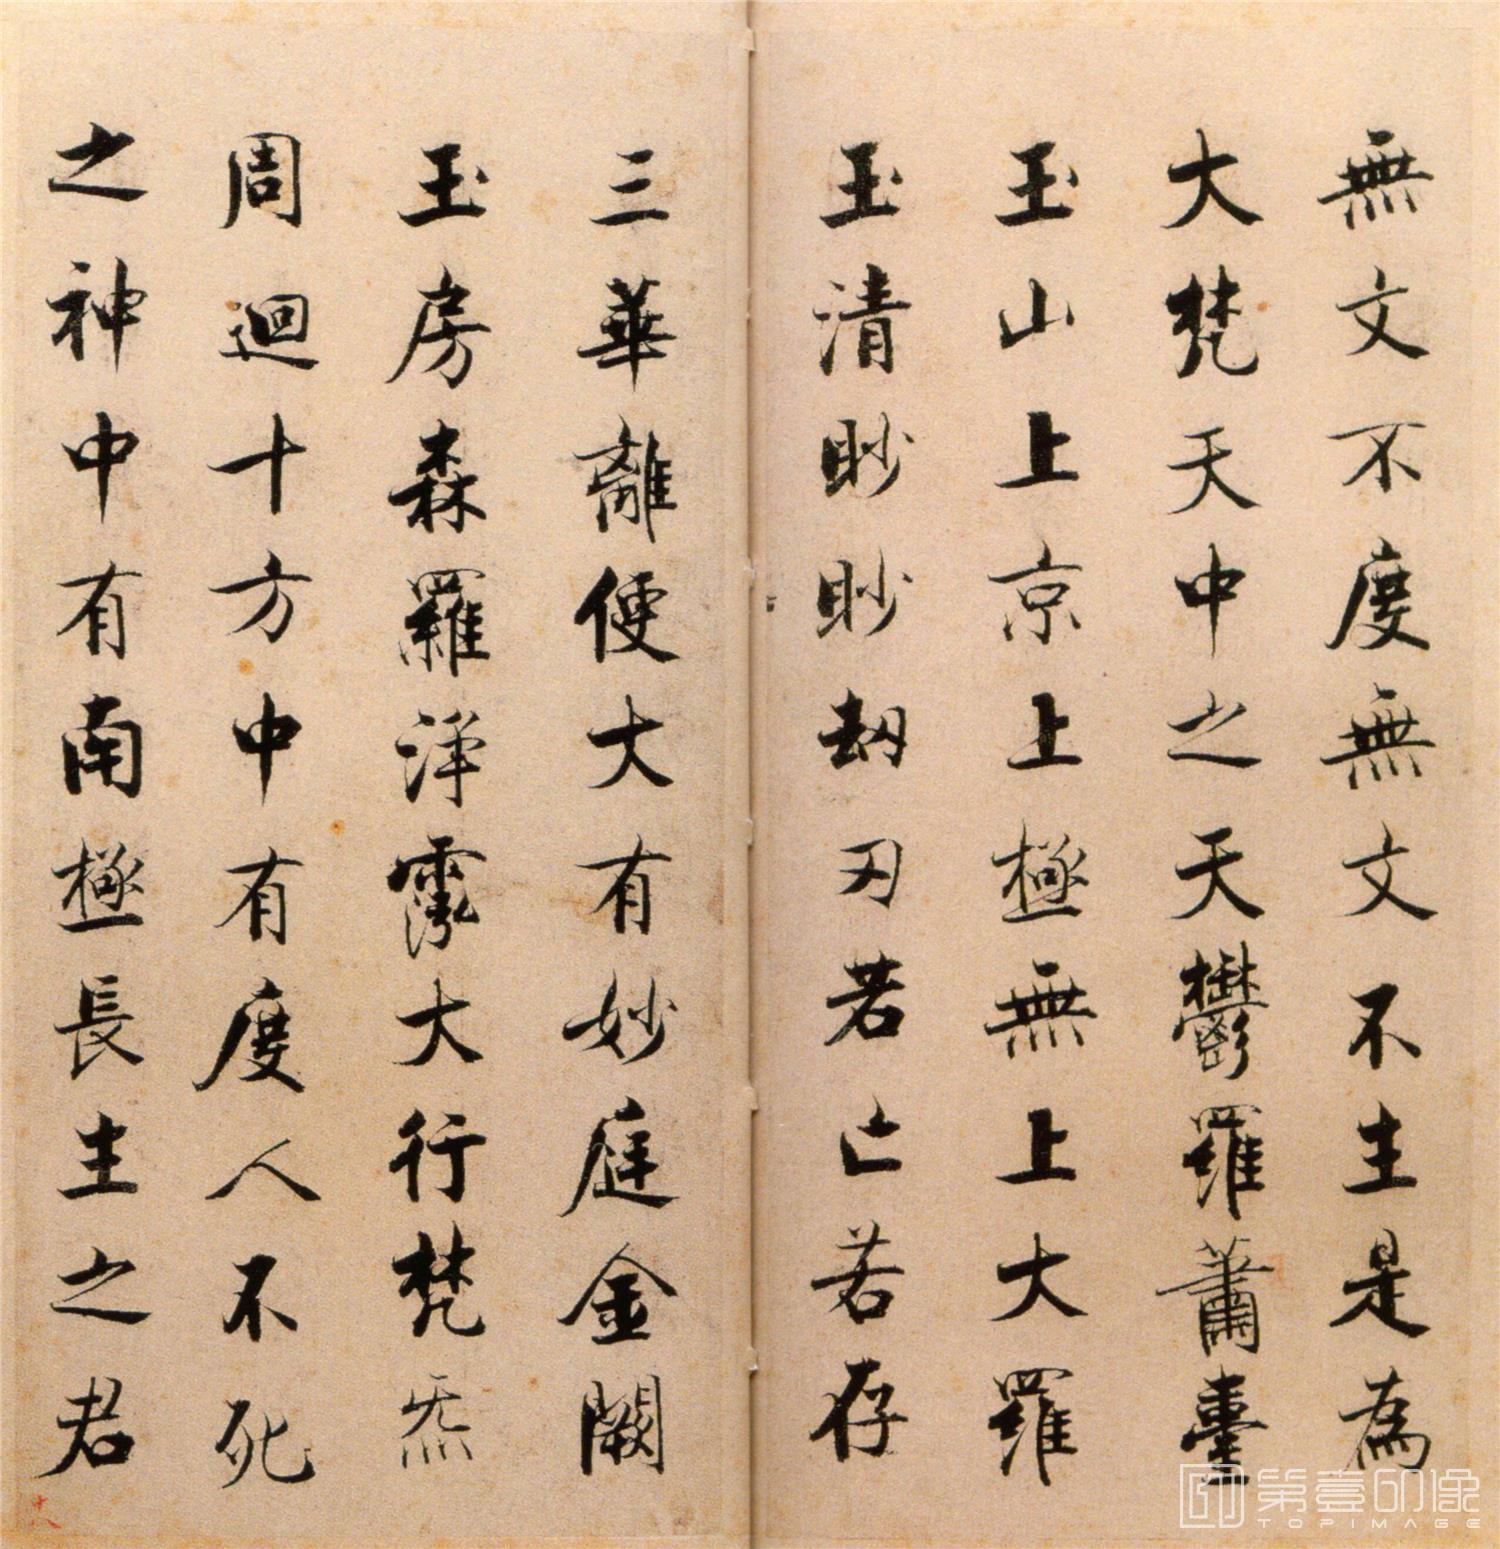 無文不度無文不主是為
大梵天中之天鬱羅蕭臺
玉山上京上極無上大羅
玉清眇眇劫刃若亡若存
三華離便大有妙庭金闕
玉房森羅淨霐大行梵炁
周迴十方中有度人不死
之神中有南極長主之君
十八
第壹印像
TOPIMAGE